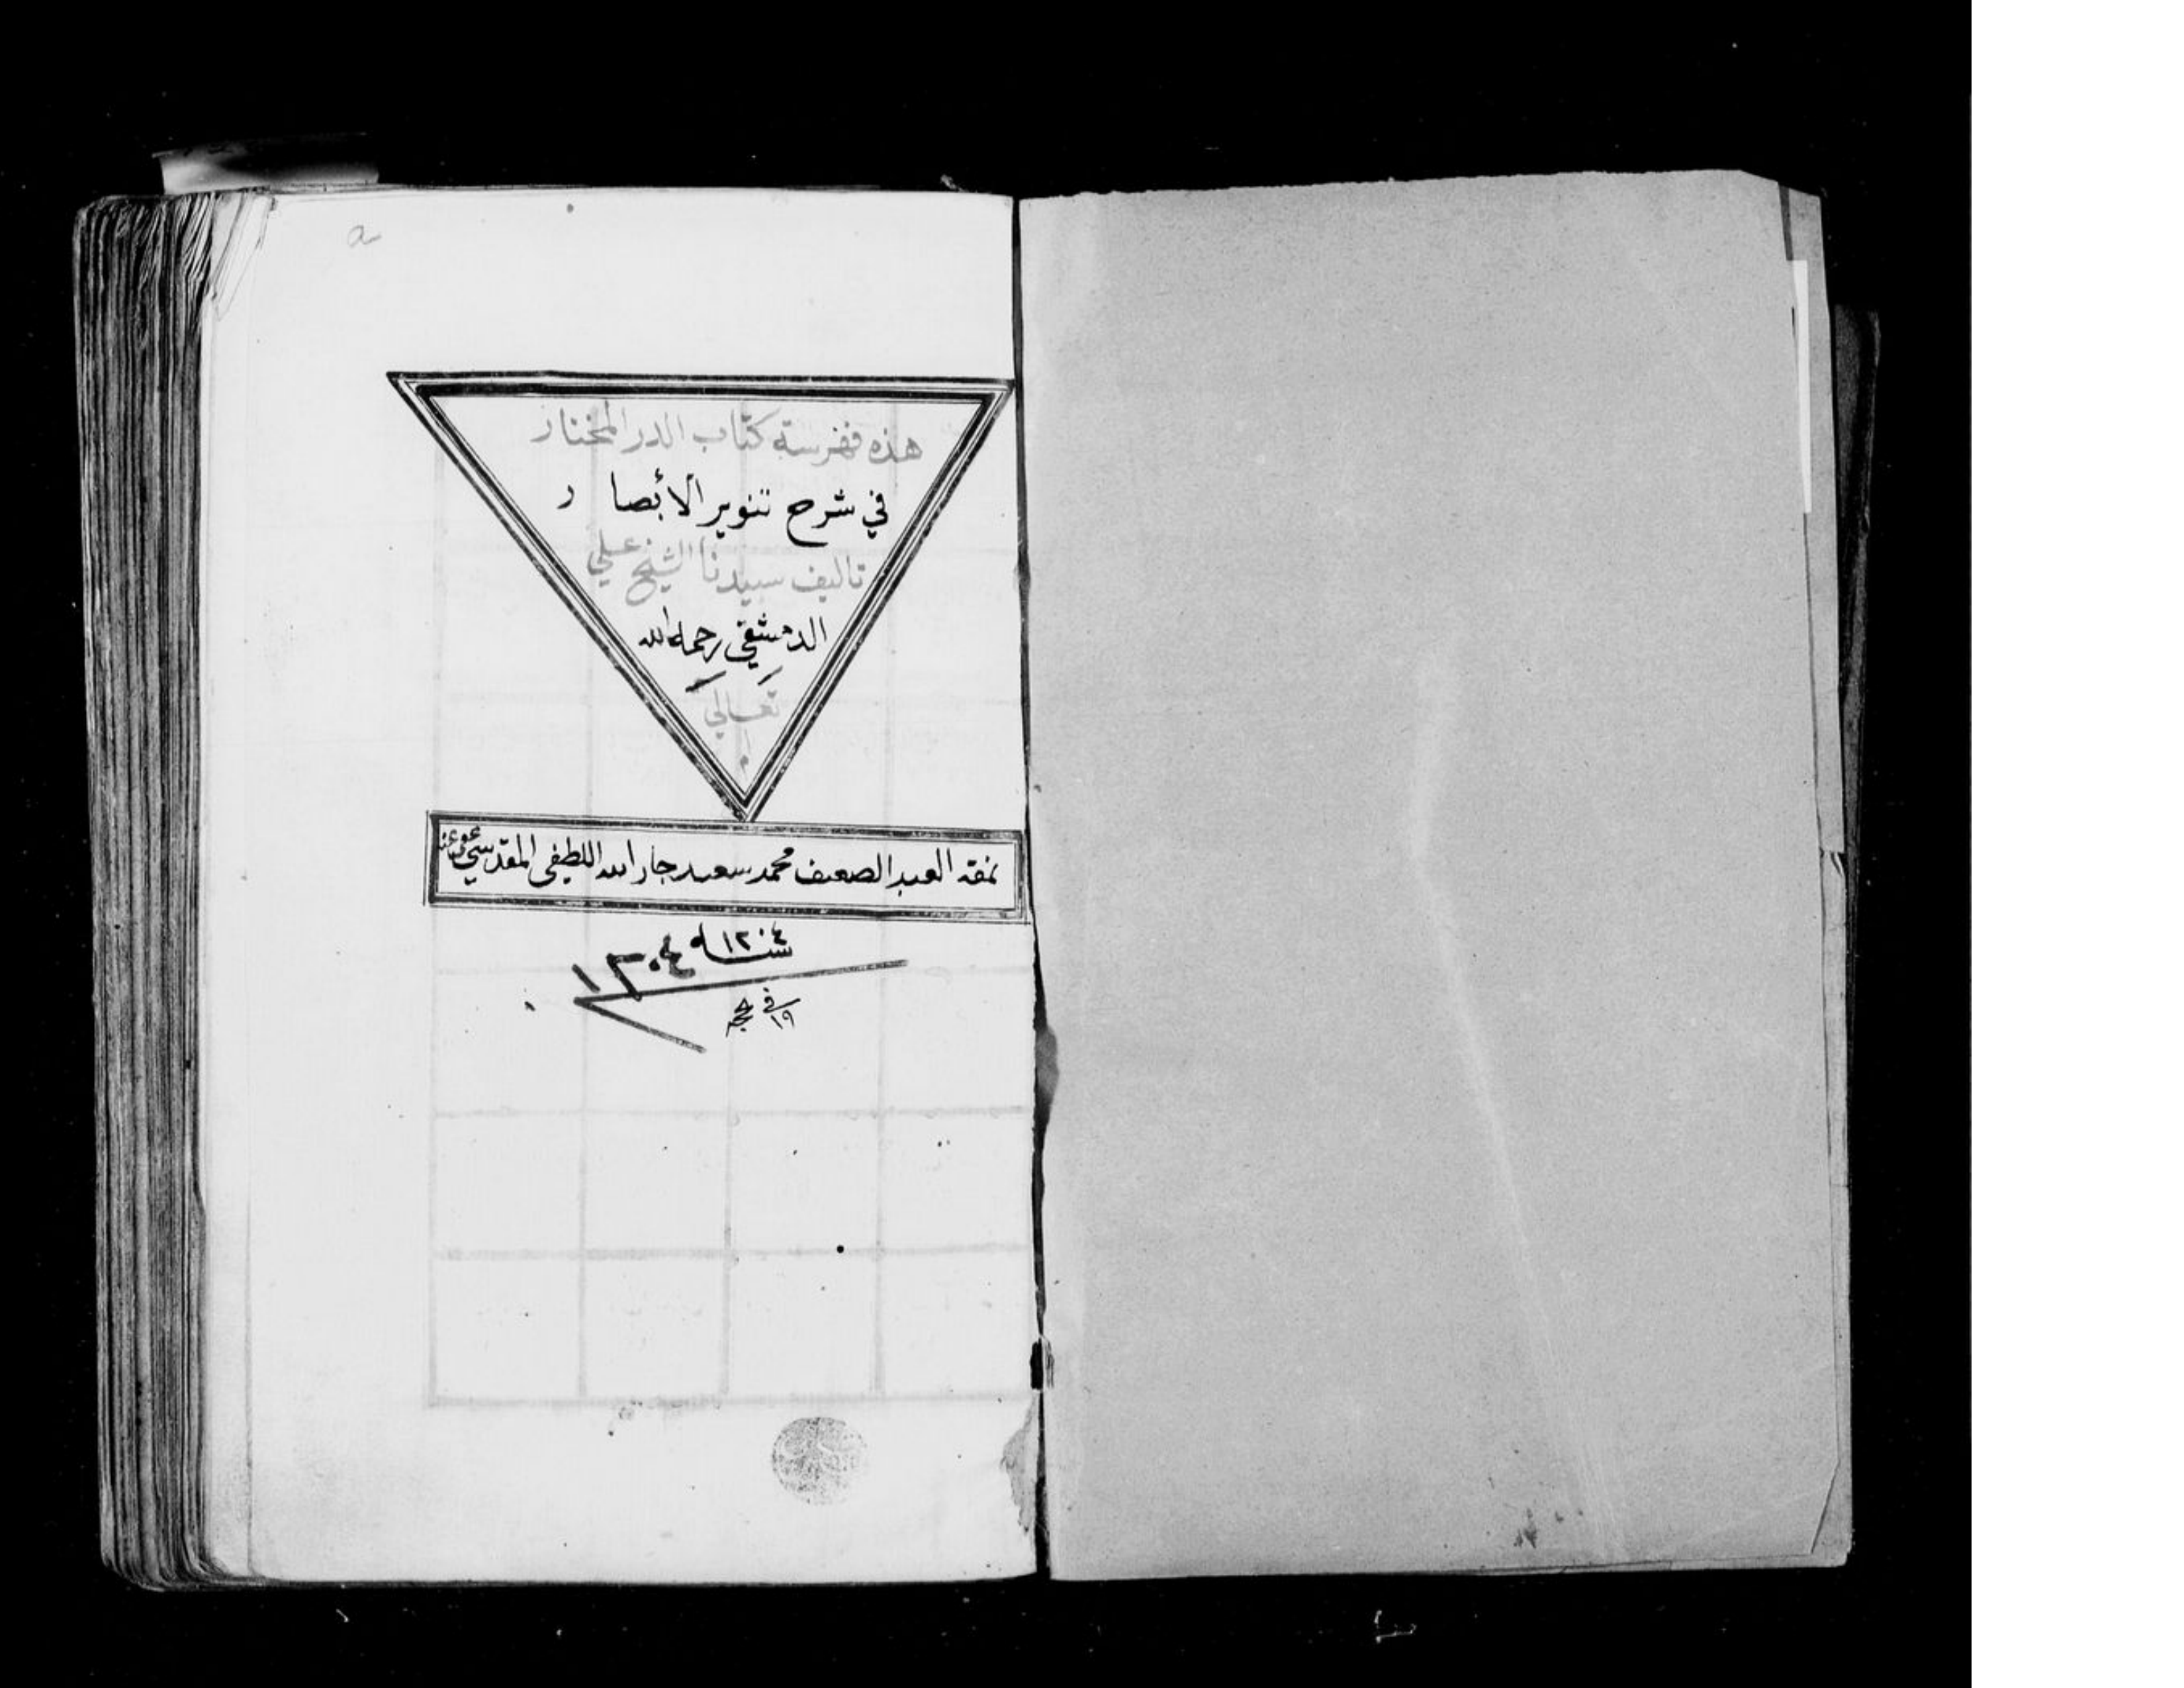 هذه فهرسة كتاب الدر المختار
في شرح تنوير الأبصار
تاليف سيدنا الشيخ علي
الدمشقي رحمه الله
تعالى
م
نمقه العبد الضعيف محمد سعيد جار الله اللطيفي المقدسي عفي عنه
سنة ١٣٠٤
في ١٩